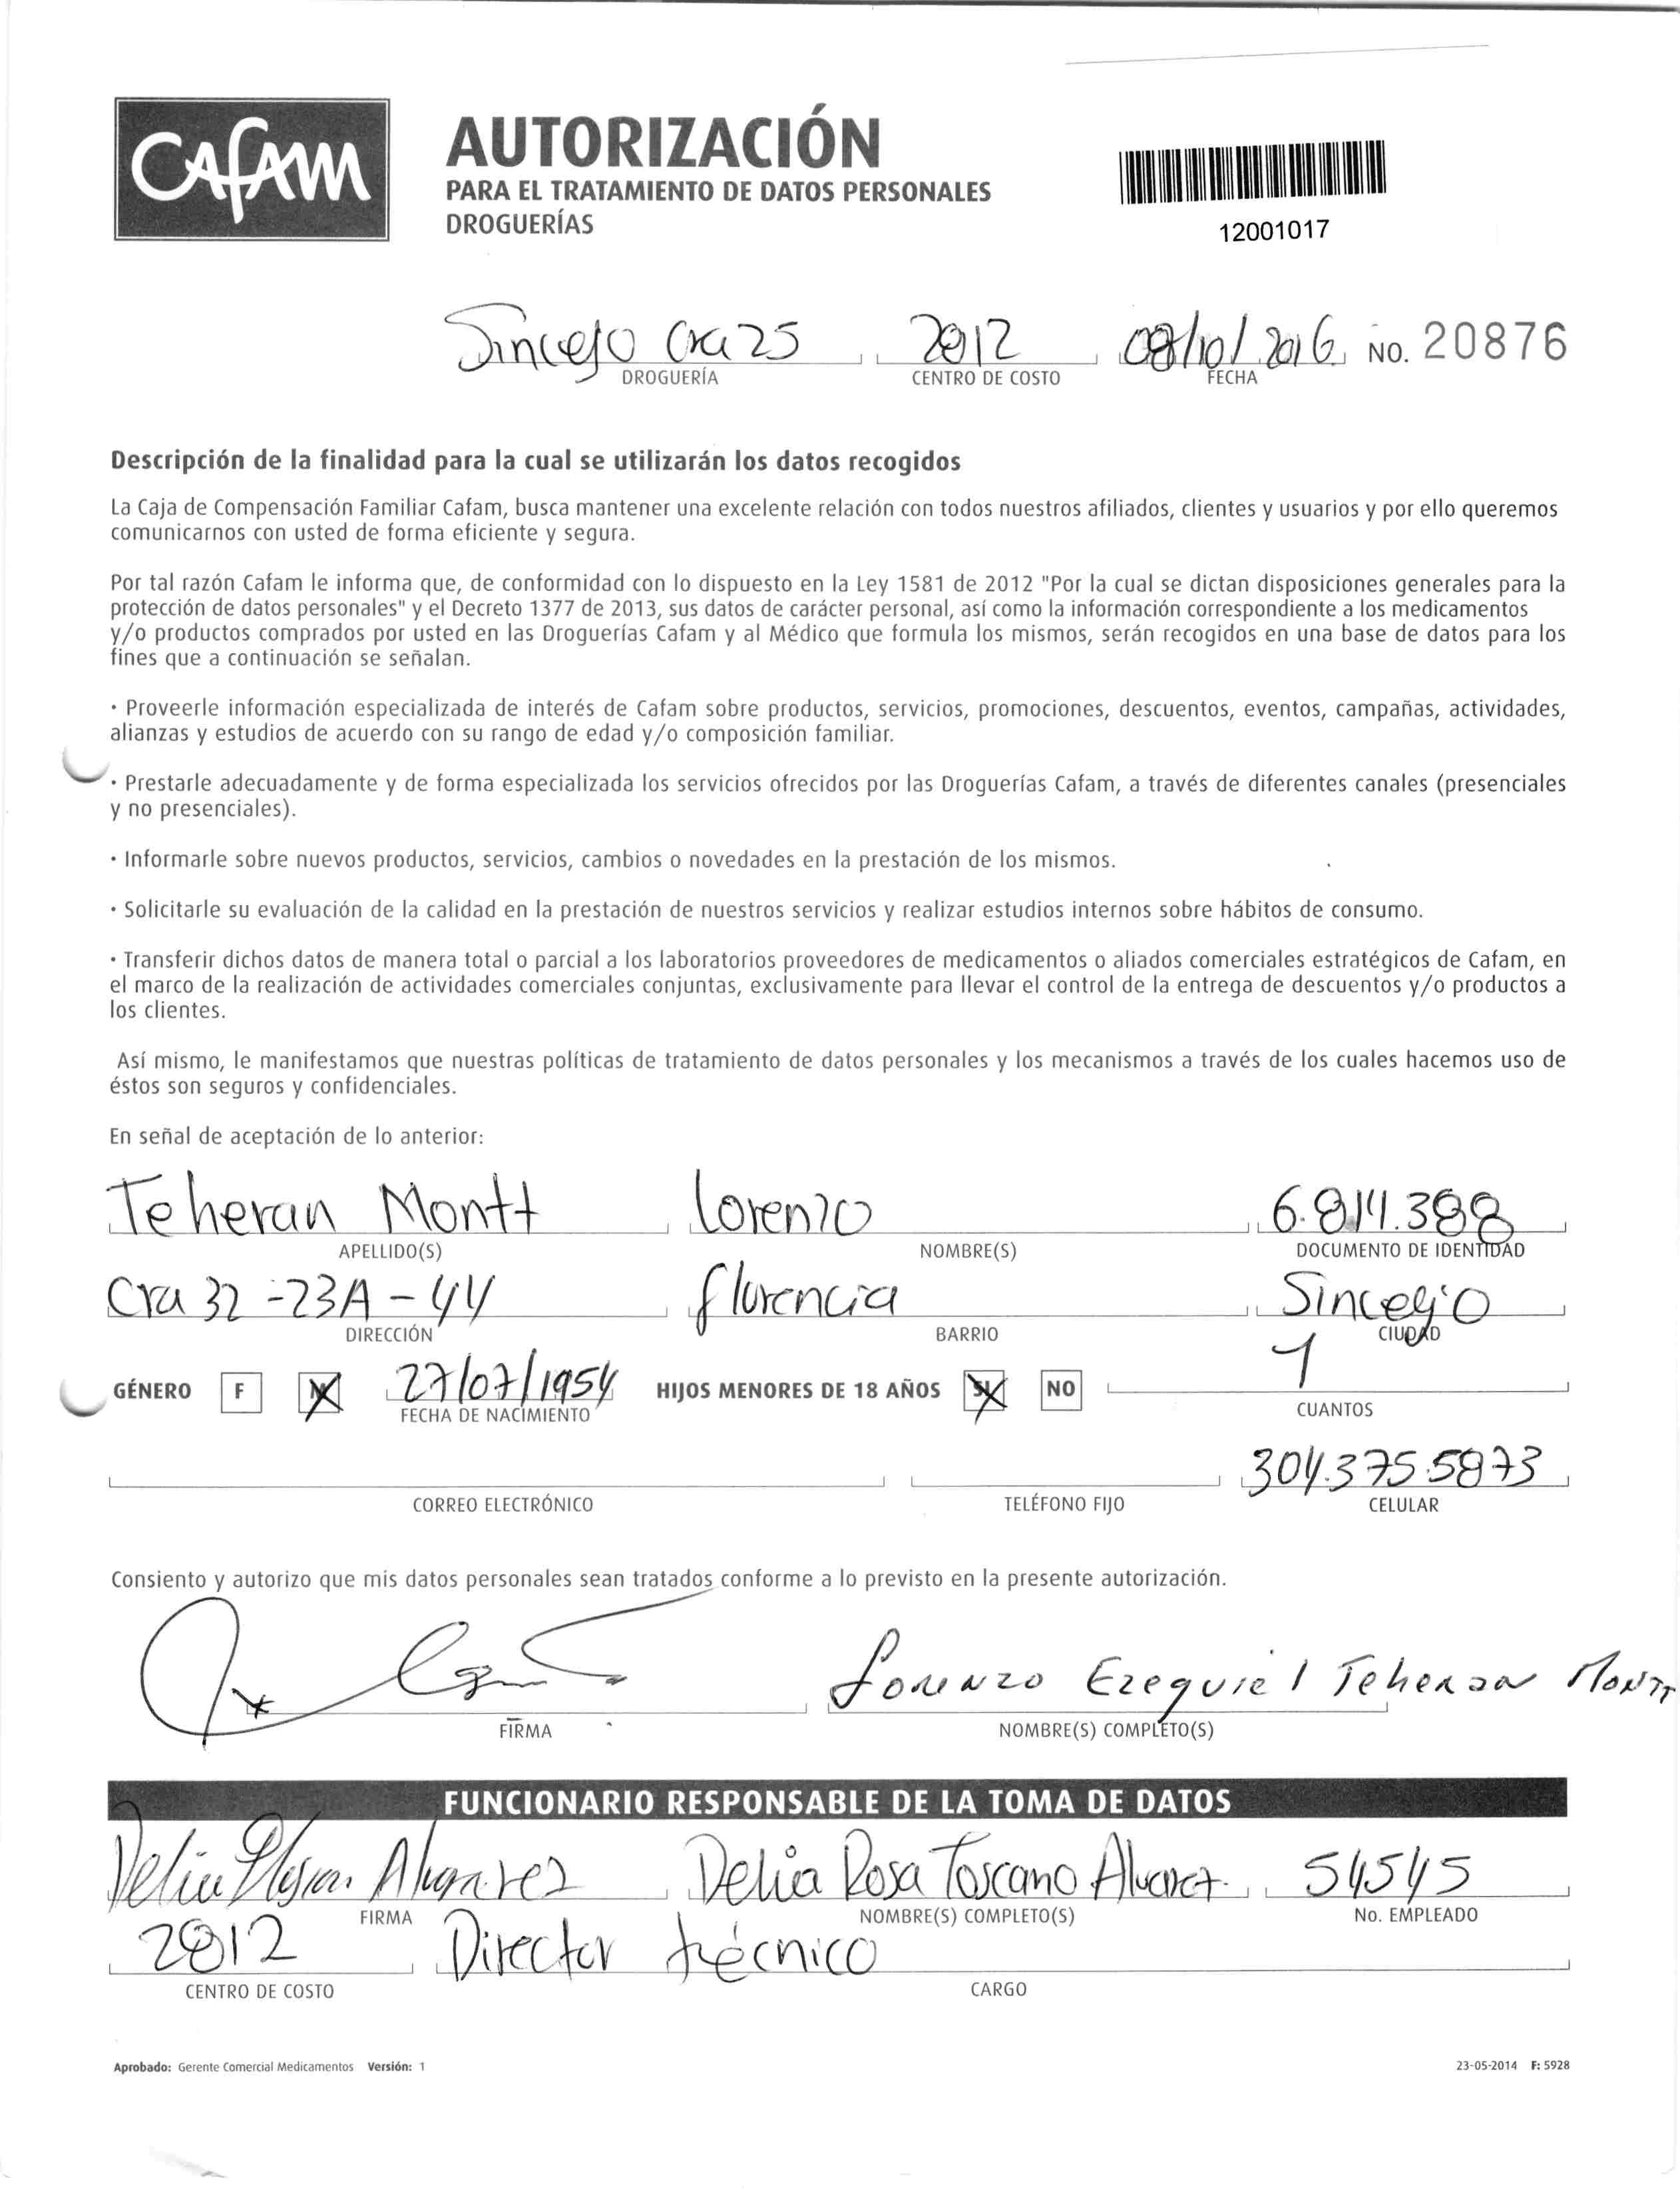 CAFAM
AUTORIZACIÓN
PARA EL TRATAMIENTO DE DATOS PERSONALES
DROGUERÍAS
12001017
Sincejo Cra 25 2012 08/10/2016 No. 20876
DROGUERÍA CENTRO DE COSTO FECHA
Descripción de la finalidad para la cual se utilizarán los datos recogidos
La Caja de Compensación Familiar Cafam, busca mantener una excelente relación con todos nuestros afiliados, clientes y usuarios y por ello queremos
comunicarnos con usted de forma eficiente y segura.
Por tal razón Cafam le informa que, de conformidad con lo dispuesto en la Ley 1581 de 2012 "Por la cual se dictan disposiciones generales para la
protección de datos personales" y el Decreto 1377 de 2013, sus datos de carácter personal, así como la información correspondiente a los medicamentos
y/o productos comprados por usted en las Droguerías Cafam y al Médico que formula los mismos, serán recogidos en una base de datos para los
fines que a continuación se señalan.
· Proveerle información especializada de interés de Cafam sobre productos, servicios, promociones, descuentos, eventos, campañas, actividades,
alianzas y estudios de acuerdo con su rango de edad y/o composición familiar.
· Prestarle adecuadamente y de forma especializada los servicios ofrecidos por las Droguerías Cafam, a través de diferentes canales (presenciales
y no presenciales).
· Informarle sobre nuevos productos, servicios, cambios o novedades en la prestación de los mismos.
· Solicitarle su evaluación de la calidad en la prestación de nuestros servicios y realizar estudios internos sobre hábitos de consumo.
· Transferir dichos datos de manera total o parcial a los laboratorios proveedores de medicamentos o aliados comerciales estratégicos de Cafam, en
el marco de la realización de actividades comerciales conjuntas, exclusivamente para llevar el control de la entrega de descuentos y/o productos a
los clientes.
Así mismo, le manifestamos que nuestras políticas de tratamiento de datos personales y los mecanismos a través de los cuales hacemos uso de
éstos son seguros y confidenciales.
En señal de aceptación de lo anterior:
Teheran Montt Lorenzo 6.814.388
APELLIDO(S) NOMBRE(S) DOCUMENTO DE IDENTIDAD
Cra 32 -23A - 44 florencia Sincejo
DIRECCIÓN BARRIO CIUDAD
GÉNERO F M 27/07/1954 HIJOS MENORES DE 18 AÑOS SI NO 1
FECHA DE NACIMIENTO CUANTOS
304.375.5873
CORREO ELECTRÓNICO TELÉFONO FIJO CELULAR
Consiento y autorizo que mis datos personales sean tratados conforme a lo previsto en la presente autorización.
Lorenzo Ezequiel Teheran Montt
FIRMA NOMBRE(S) COMPLETO(S)
FUNCIONARIO RESPONSABLE DE LA TOMA DE DATOS
Delia Alvarez Delia Rosa Toscano Alvarez 54545
FIRMA NOMBRE(S) COMPLETO(S) No. EMPLEADO
2012 Director técnico
CENTRO DE COSTO CARGO
Aprobado: Gerente Comercial Medicamentos Versión: 1 23-05-2014 F: 5928